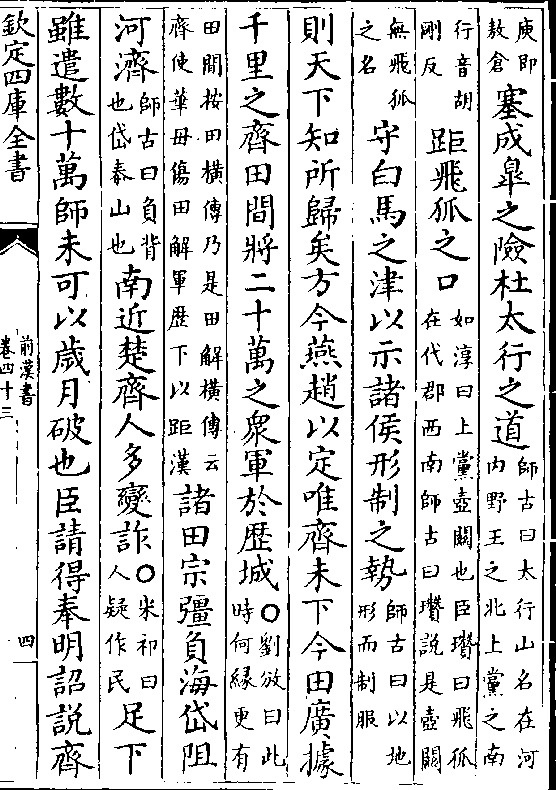 庾即敖倉塞成臯之險杜太行之道師古曰太行山名在河内野王之北上黨之南
行音胡剛反距飛狐之口如淳曰上黨壺關也臣瓚曰飛狐在代郡西南師古曰瓚說是壺關
無飛狐之名守白馬之津以示諸侯形制之勢師古曰以地形而制服
則天下知所歸矣方今燕趙以定唯齊未下今田廣據
千里之齊田間將二十萬之衆軍於歴城○劉攽曰此時何縁更有
田間按田横傳乃是田解横傳云齊使華毋傷田解軍歴下以距漢諸田宗彊負海岱阻
河濟師古曰負背也岱泰山也南近楚齊人多變詐○宋祁曰人疑作民足下
雖遣數十萬師未可以歳月破也臣請得奉明詔說齊
欽定四庫全書
前漢書
卷四十三
四